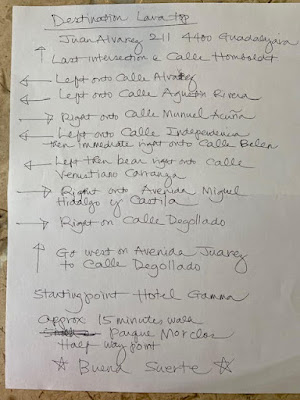 Destination Lava top
Juan Alvarez 211 4400 Guadalajara
Last intersection @ Calle Homboldt
Left onto Calle Alvarez
Left onto Calle Agustin Rivera
Right onto Calle Manuel Acuña
Left onto Calle Independencia
then immediate right onto Calle Belen
Left then bear right onto Calle
Venustiano Carranza
Right onto Avenida Miguel
Hidalgo y Castila
Right on Calle Degollado
Go west on Avenida Juarez
to Calle Degollado
Starting point Hotel Gamma
approx 15 minutes walk
Parque Morelos
Half way point
Buena Suerte